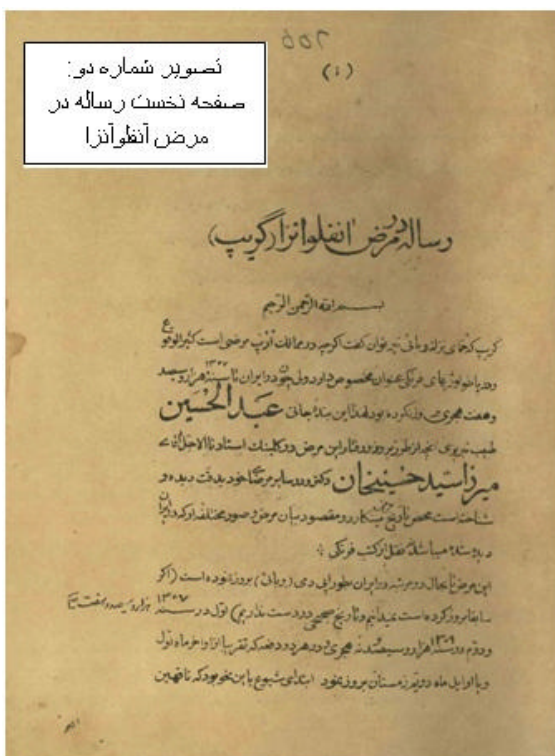 ۲۵۵
(۱)
تصویر شماره دو:
صفحه نخست رساله در
مرض آنفلوآنزا
رساله در مرض انفلوانزا (گریپ)
بسم الله الرحمن الرحیم
کریپ که حمای نزله وبائی نیز توان گفت اگرچه در ممالک اروپ مرضی است کثیر الوقوع
و در پاطولوژیهای فرنگی عنوان مخصوص دارد ولی چون در ایران تا سنهٔ ۱۳۰۷ هزار و سیصد
و هفت هجری بروز نکرده بود لهذا این بنده جانی عبدالحسین
طبیب تبریزی آنچه از طرز بروز و رفتار این مرض در کلینیک استاد ذا الاجلال آقای
میرزا سید حسینخان دکتر و در سایر مرضا خود بدقت دیده و
شناخته است محض تاریخ میگارد و مقصود بیان مرض و صور مختلفه او که در ایران
دیده شده میباشد نه نقل از کتب فرنگی
این مرض تا بحال دو مرتبه در ایران بطور اپی دمی (وبائی) بروز نموده است (اگر
سابقا بروز کرده است نمیدانیم و تاریخ صحیحی در دست نداریم) اول در سنه ۱۳۰۷ هزار و سیصد و هفت
و دوم در سنه ۱۳۰۹ هزار و سیصد و نه هجری و در هر دو دفعه که تقریبا از اواخر ماه اول
و یا اوایل ماه دویم زمستان بروز نمود ابتدای شیوع باین نحو بود که ناقهین